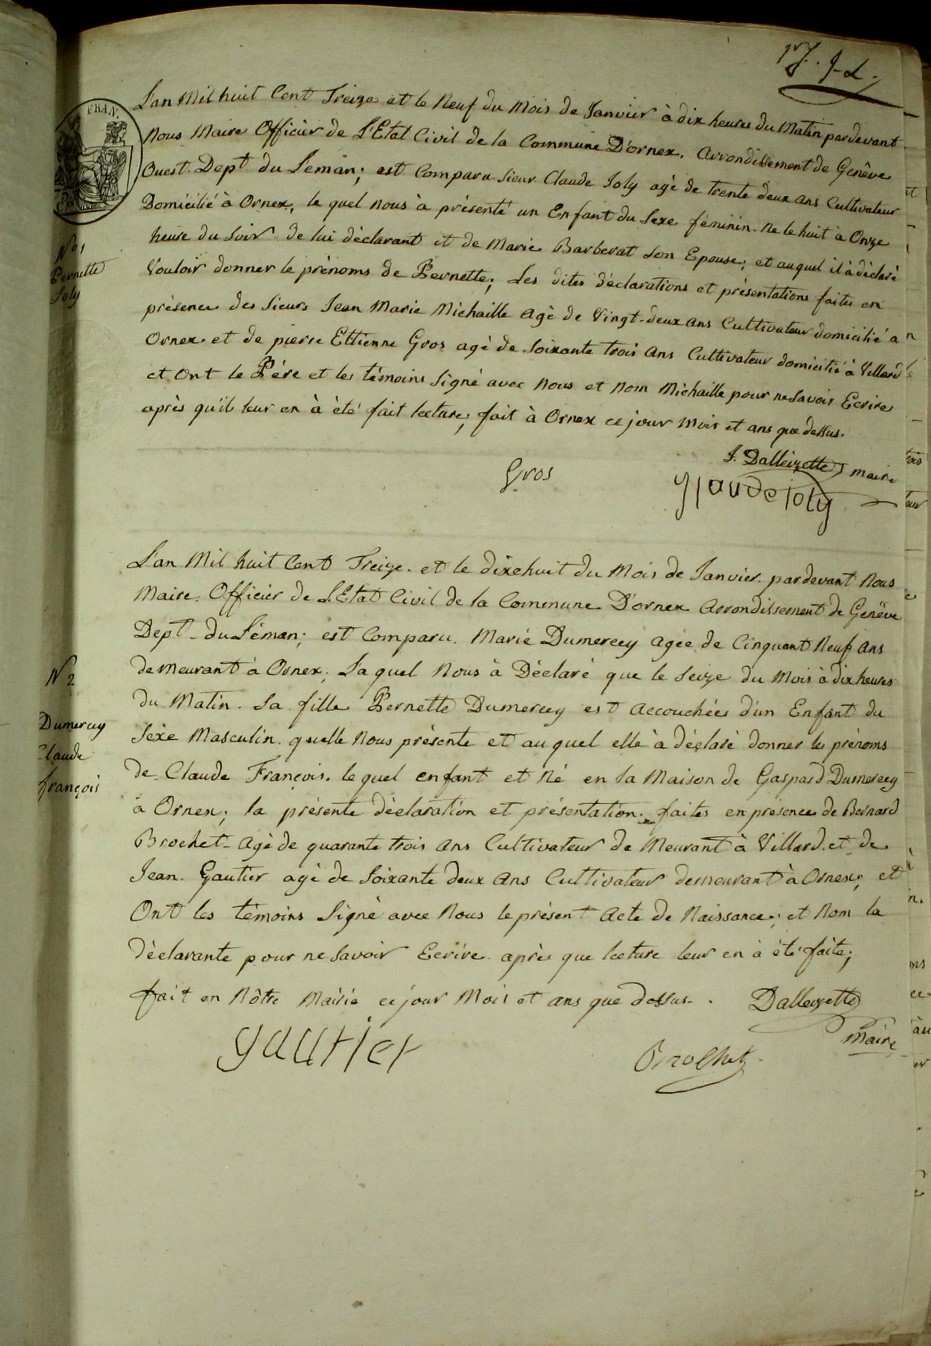 1er. J. L.
FRAN.
L'an Mil huit Cent Treize et le Neuf du Mois de Janvier à dix heures du Matin pardevant
Nous Maire Officier de L'Etat Civil de la Commune D'ornex. Arrondissement de Genêve
Ouest Dept du Léman; est Comparu Sieur Claude Joly agé de trente deux ans Cultivateur
Domicilié à Ornex, le quel Nous à présenté un Enfant du Sexe féminin. Né le huit à Onze
heure du Soir de lui déclarant et de Marie Barberat son Epouse; et auquel il à déclaré
Vouloir donner le prénoms de Pernette, Les dites déclarations et présentations faites en
présence des Sieurs Jean Marie Michaille Agé de Vingt-deux ans Cultivateur domicilié à
Ornex. et de pierre Ettienne Gros agé de Soixante trois Ans Cultivateur domicilié à Villard
et Ont le Pére et les témoins Signé avec Nous et Nom Michaille pour ne Savoir Ecrire
après qu'il leur en à été fait lecture, fait à Ornex ce jour Mois et ans que dessus.
N° 1
Pernette
Joly
J. Dalleizette maire
Gros
Glaude joly
L'an Mil huit Cent Treize. et le dixehuit du Mois de Janvier. pardevant Nous
Maire. Officier de L'Etat Civil de la Commune D'ornex Arrondissement de Genêve
Dept du Léman; est Comparu. Marie Dumercey Agée de Cinquant Neuf Ans
demeurant à Ornex; La quel Nous à Déclaré que le Seize du Mois à dix heures
du Matin. Sa fille Pernette Dumercey est Accouchées d'un Enfant du
Séxe Masculin. quelle Nous présente et auquel elle à déclaré donner les prénoms
de. Claude François. le quel enfant et Né en la Maison de Gaspard Dumercey
à Ornex; la présente déclaration et présentation. faites en présence de Bernard
Brochet. Agé de quarante trois Ans Cultivateur de Meurant à Villard. et de
Jean. Gautier agé de Soixante deux Ans Cultivateur demeurant à Ornex; et
Ont les témoins Signé avec Nous le présent Acte de Naissance; et Nom la
déclarante pour ne Savoir Ecrire. après que lecture leur en à été faite;
fait en Nôtre Mairie ce jour Mois et ans que dessus.
N 2
Dumercey
Claude
françois
Dalleizette
Maire
gautier
Brochet